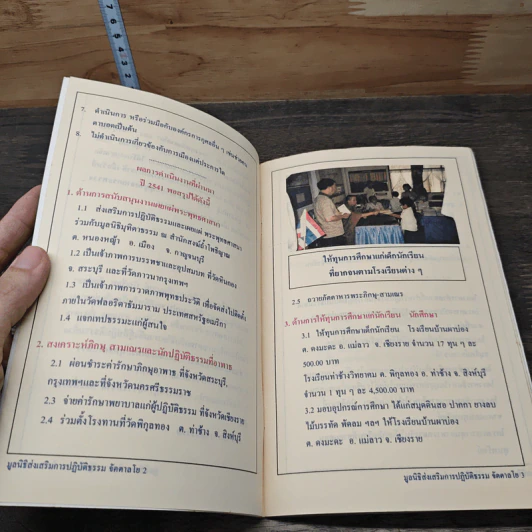 7. ดำเนินการ หรือร่วมมือกับองค์กรการกุศลอื่น ๆ
8. ไม่ดำเนินการเกี่ยวข้องกับการเมืองแต่ประการใด
ผลการดำเนินงานที่ผ่านมา
ปี 2541 พอสรุปได้ดังนี้
1. ด้านการสนับสนุนงานเผยแผ่พระพุทธศาสนา
1.1 ส่งเสริมการปฏิบัติธรรมและเผยแผ่ พระพุทธศาสนา
ร่วมกับมูลนิธิมุทิตาธรรม ณ สำนักสงฆ์ถ้ำโพธิญาณ
ต. หนองหญ้า อ. เมือง จ. กาญจนบุรี
1.2 เป็นเจ้าภาพการบรรพชาและอุปสมบท ที่วัด
จ. สระบุรี และที่วัดภาวนากรุงเทพฯ
1.3 เป็นเจ้าภาพการวาดภาพพุทธประวัติ เพื่อจัดส่งไปติดตั้ง
ภายในวัดพลอริดาธัมมาราม ประเทศสหรัฐอเมริกา
1.4 แจกเทปธรรมะแก่ผู้สนใจ
2. สงเคราะห์ภิกษุ สามเณรและนักปฏิบัติธรรมที่อาพาธ
2.1 ผ่อนชำระค่ารักษาภิกษุอาพาธ ที่จังหวัดสระบุรี,
กรุงเทพฯและที่จังหวัดนครศรีธรรมราช
2.3 จ่ายค่ารักษาพยาบาลแก่ผู้ปฏิบัติธรรม ที่จังหวัดเชียงราย
2.4 ร่วมตั้งโรงทานที่วัดพิกุลทอง ต. ท่าช้าง จ. สิงห์บุรี
มูลนิธิส่งเสริมการปฏิบัติธรรม จิตตาลโย 2
ให้ทุนการศึกษาแก่เด็กนักเรียน
ที่ยากจนตามโรงเรียนต่าง ๆ
2.5 ถวายภัตตาหารพระภิกษุ-สามเณร
3. ด้านการให้ทุนการศึกษาแก่นักเรียน นักศึกษา
3.1 ให้ทุนการศึกษาเด็กนักเรียน โรงเรียนบ้านผาปอง
ต. ดงมะดะ อ. แม่ลาว จ. เชียงราย จำนวน 17 ทุน ๆ ละ
500.00 บาท
โรงเรียนท่าช้างวิทยาคม ต. พิกุลทอง อ. ท่าช้าง จ. สิงห์บุรี
จำนวน 1 ทุน ๆ ละ 4,500.00 บาท
3.2 มอบอุปกรณ์การศึกษา ได้แก่สมุดดินสอ ปากกา ยางลบ
ไม้บรรทัด พัดลม ฯลฯ ให้โรงเรียนบ้านผาปอง
ต. ดงมะดะ อ. แม่ลาว จ. เชียงราย
มูลนิธิส่งเสริมการปฏิบัติธรรม จิตตาลโย 3